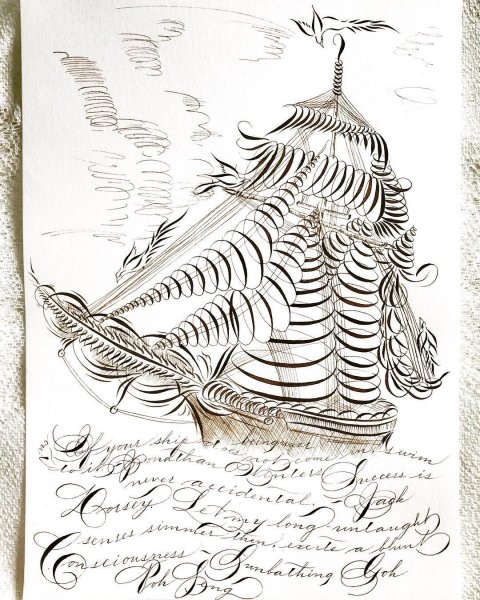 If your ship not come in, swim
to it Jonathan Winters Success is
never accidental, Jack
Dorsey. Let my long untaught
senses simmer then, excite a blunt
Consciousness ~ Sunbathing Goh
Poh Seng